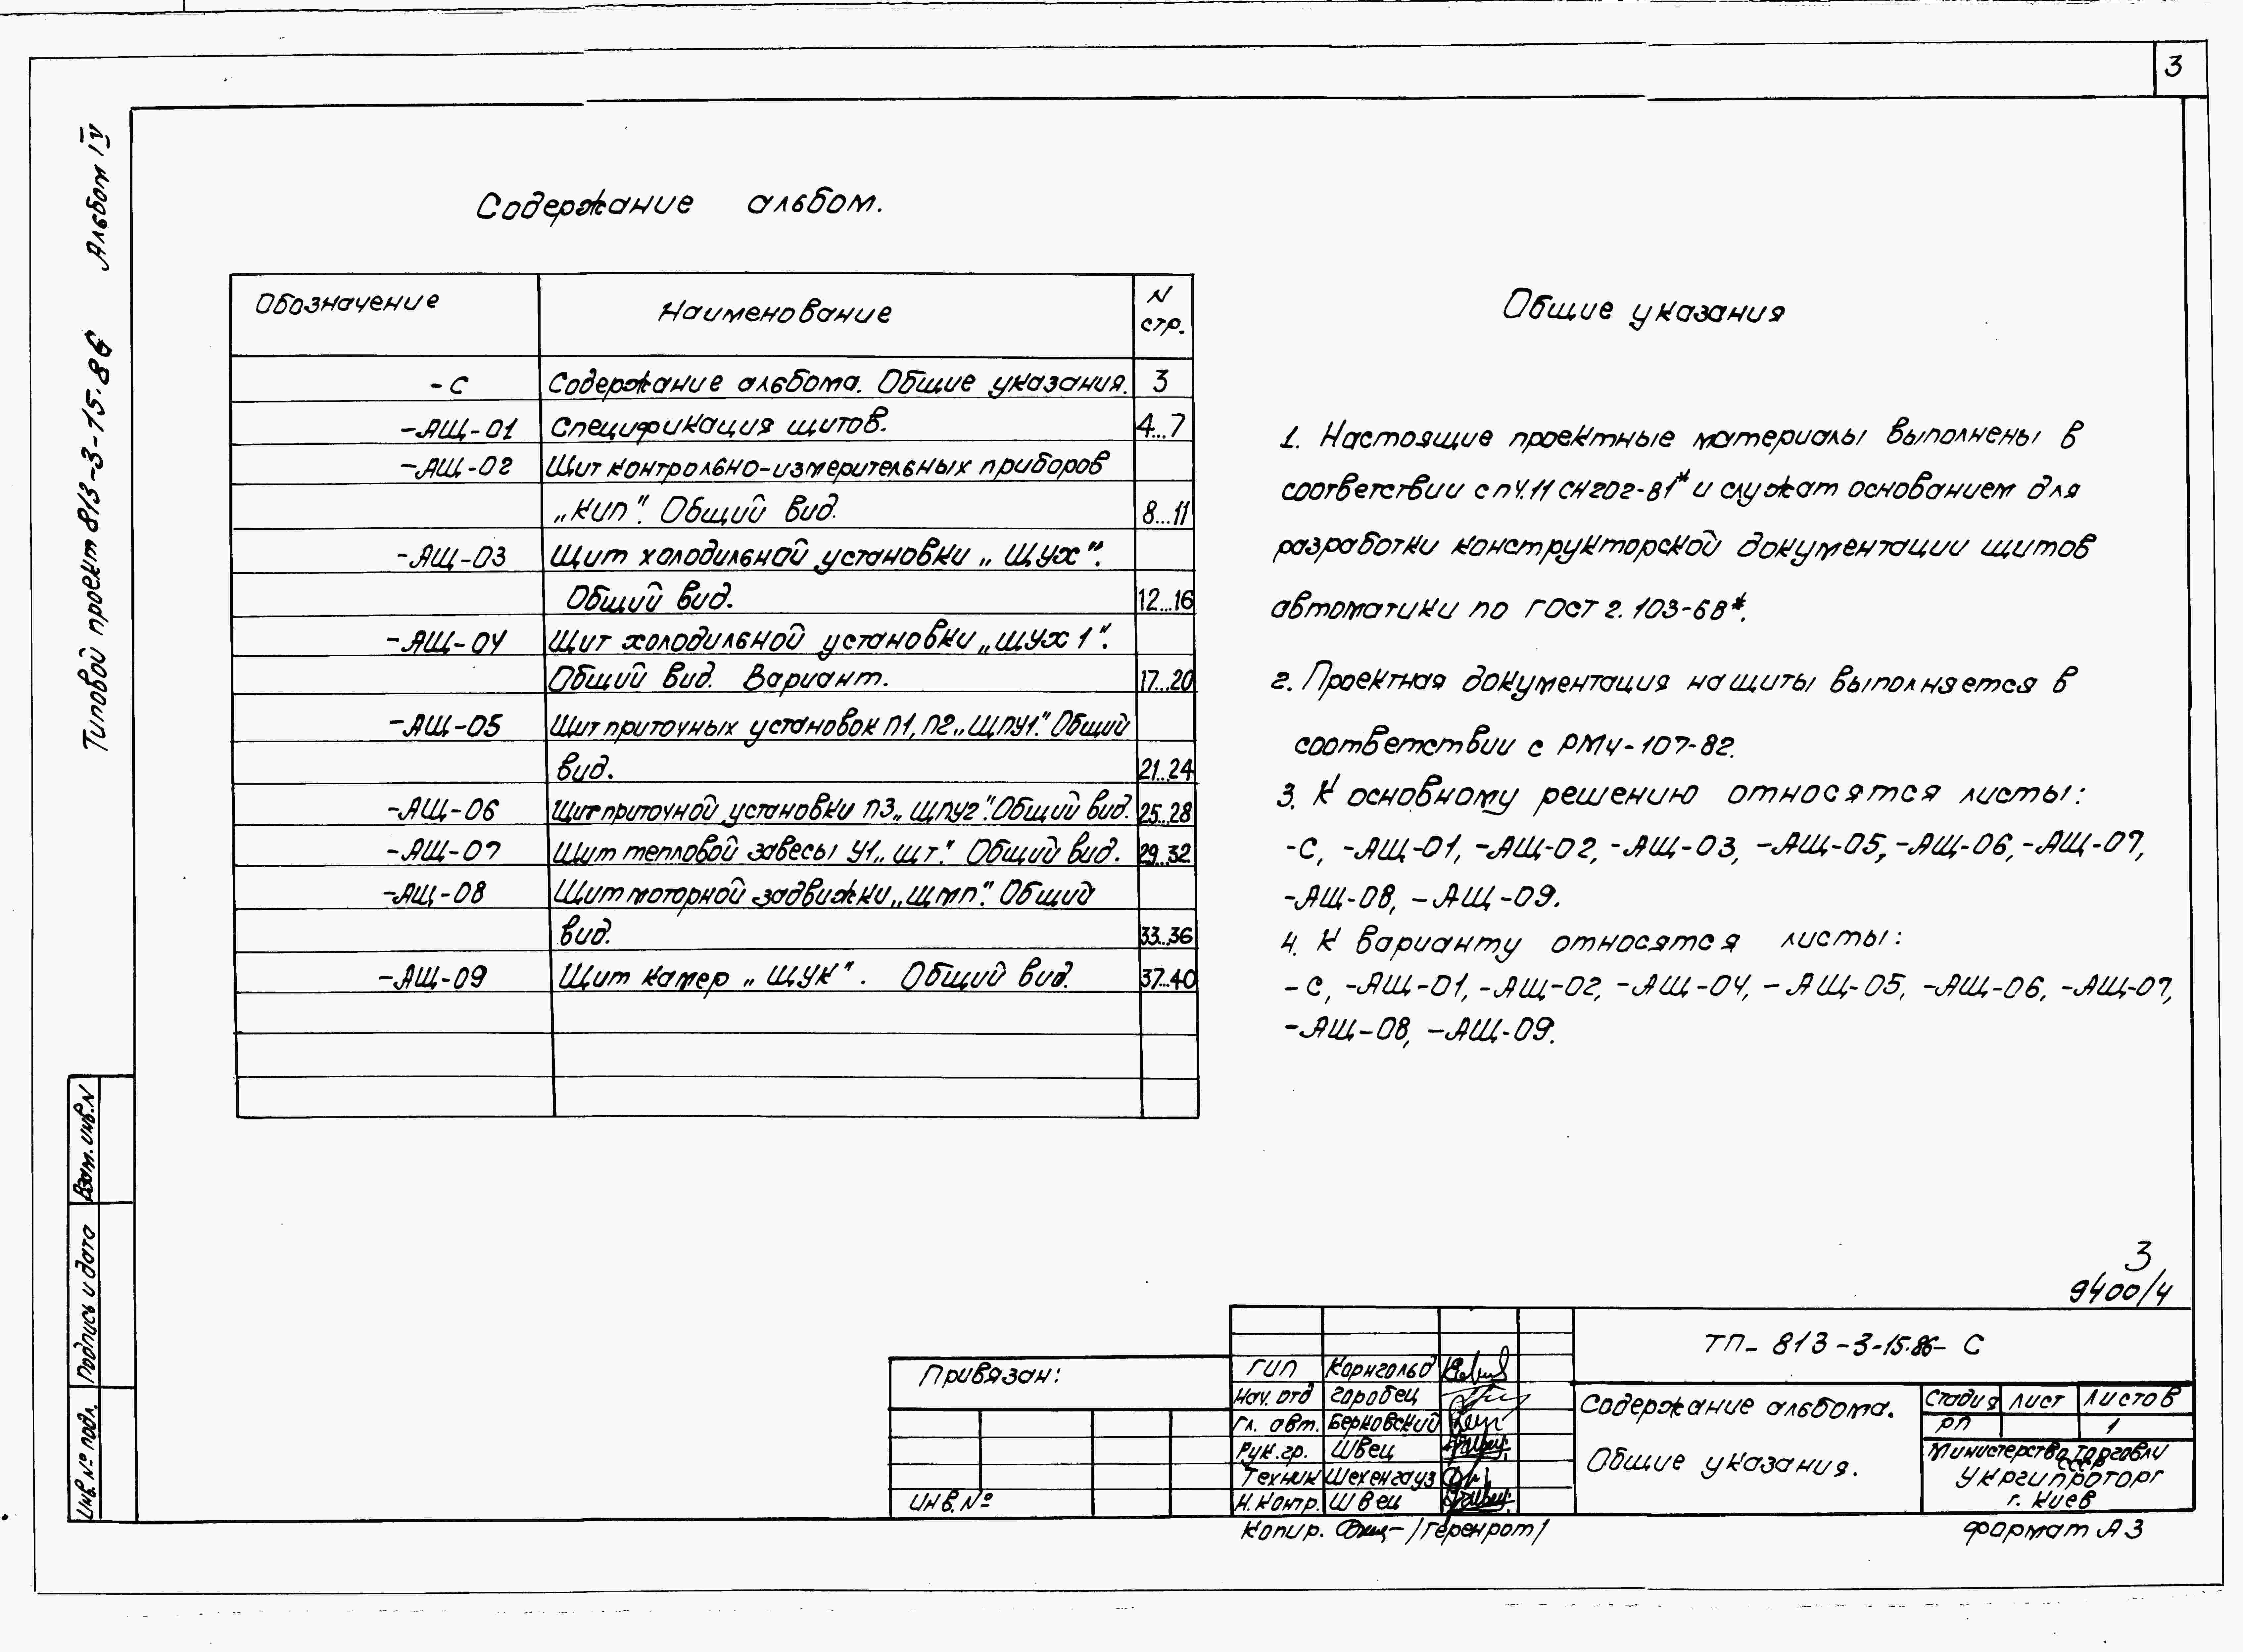 3
Типовой проект 813-3-15.86 Альбом IV
Содержание альбом.
Обозначение Наименование N стр.
-С Содержание альбома. Общие указания. 3
-АЩ-01 Спецификация щитов. 4...7
-АЩ-02 Щит контрольно-измерительных приборов
„КИП". Общий вид. 8...11
-АЩ-03 Щит холодильной установки „ЩУХ".
Общий вид. 12...16
-АЩ-04 Щит холодильной установки „ЩУХ 1".
Общий вид. Вариант. 17...20
-АЩ-05 Щит приточных установок П1, П2 „ЩПУ1". Общий
вид. 21...24
-АЩ-06 Щит приточной установки П3 „ЩПУ2". Общий вид. 25...28
-АЩ-07 Щит тепловой завесы У1 „ЩТ". Общий вид. 29...32
-АЩ-08 Щит моторной задвижки „ЩМП". Общий
вид. 33...36
-АЩ-09 Щит камер „ЩУК". Общий вид. 37...40
Общие указания
1. Настоящие проектные материалы выполнены в
соответствии с п4.11 СН202-81* и служат основанием для
разработки конструкторской документации щитов
автоматики по ГОСТ 2.103-68*.
2. Проектная документация на щиты выполняется в
соответствии с РМ4-107-82.
3. К основному решению относятся листы:
-С, -АЩ-01, -АЩ-02, -АЩ-03, -АЩ-05, -АЩ-06, -АЩ-07,
-АЩ-08, -АЩ-09.
4. К варианту относятся листы:
-С, -АЩ-01, -АЩ-02, -АЩ-04, -АЩ-05, -АЩ-06, -АЩ-07,
-АЩ-08, -АЩ-09.
3
9400/4
Взам. инв. N
Подпись и дата
Инв. № подл.
Привязан:
Инв. №
ГИП Корнгольд
Нач. отд Горобец
Гл. авт. Берковский
Рук. гр. Швец
Техник Шехенгауз
Н. контр. Швец
ТП- 813-3-15.86- С
Содержание альбома.
Общие указания.
Стадия Лист Листов
РП 1
Министерство торговли
СССР
Укргипроторг
г. Киев
Копир. /Геренрот/
Формат А3